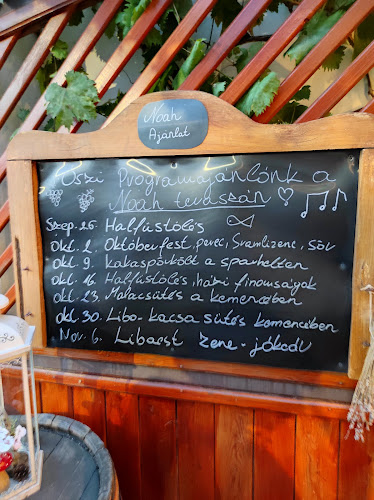 Noah
Ajánlat
Őszi Programajánlónk a
Noah teraszán
Szep. 25. Halfüstölés
Okt. 2. Októberfest, perec, Sramlizene, sör
Okt. 9. Kakaspörkölt a sparhelten
Okt. 16. Halfüstölés, házi finomságok
Okt. 23. Malacsütés a kemencében
Okt. 30. Liba-kacsa sütés kemencében
Nov. 6. Libaest zene - jókedv